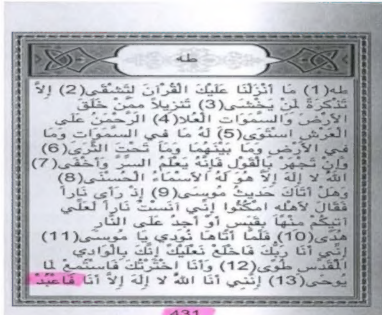 طه
طه(1) مَا أَنْزَلْنَا عَلَيْكَ الْقُرْآنَ لِتَشْقَى(2) إِلاَّ
تَذْكِرَةً لِمَنْ يَخْشَى(3) تَنْزِيلاً مِمَّنْ خَلَقَ
الْأَرْضَ وَالسَّمَوَاتِ الْعُلاَ(4) الرَّحْمَنُ عَلَى
الْعَرْشِ اسْتَوَى(5) لَهُ مَا فِي السَّمَوَاتِ وَمَا
فِي الْأَرْضِ وَمَا بَيْنَهُمَا وَمَا تَحْتَ الثَّرَى(6)
وَإِنْ تَجْهَرْ بِالْقَوْلِ فَإِنَّهُ يَعْلَمُ السِّرَّ وَأَخْفَى(7)
اللَّهُ لاَ إِلَهَ إِلاَّ هُوَ لَهُ الْأَسْمَاءُ الْحُسْنَى(8)
وَهَلْ أَتَاكَ حَدِيثُ مُوسَى(9) إِذْ رَأَى نَاراً
فَقَالَ لِأَهْلِهِ امْكُثُوا إِنِّي آنَسْتُ نَاراً لَعَلِّي
آتِيكُمْ مِنْهَا بِقَبَسٍ أَوْ أَجِدُ عَلَى النَّارِ
هُدًى(10) فَلَمَّا أَتَاهَا نُودِيَ يَا مُوسَى(11)
إِنِّي أَنَا رَبُّكَ فَاخْلَعْ نَعْلَيْكَ إِنَّكَ بِالْوَادِي
الْمُقَدَّسِ طُوًى(12) وَأَنَا اخْتَرْتُكَ فَاسْتَمِعْ لِمَا
يُوحَى(13) إِنَّنِي أَنَا اللَّهُ لاَ إِلَهَ إِلاَّ أَنَا فَاعْبُدْ
431